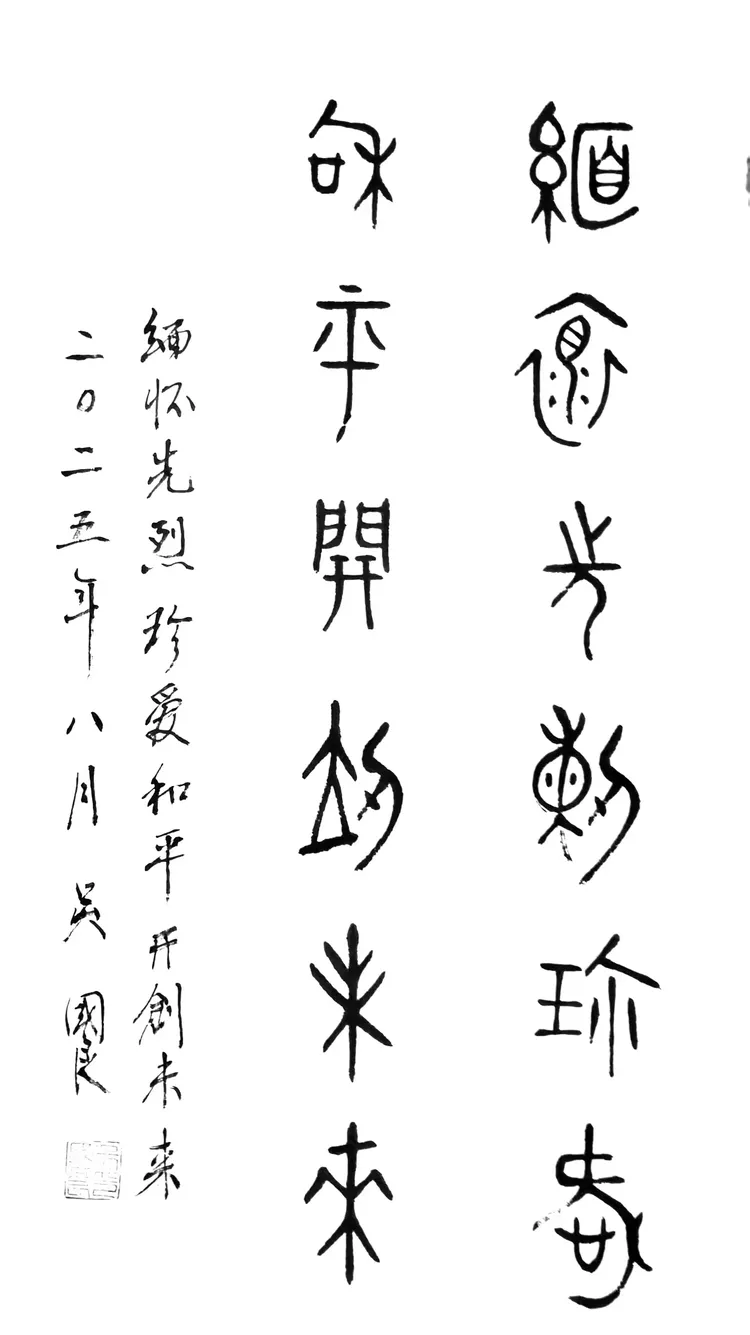 緬懷先烈珍愛
和平開創未來
緬怀先烈珍爱和平开創未来
二〇二五年八月吳國良